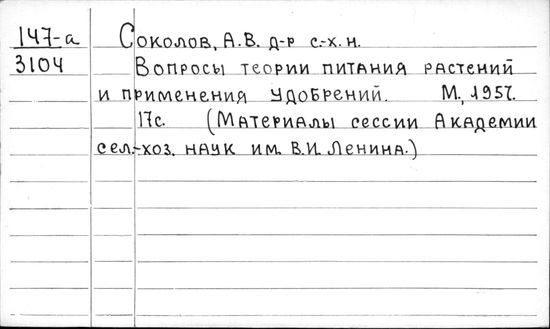 147-а Соколов, А.В. д-р с.-х. н.
3104 Вопросы теории питания растений
и применения удобрений. М., 1957.
17с. (Материалы сессии Академии
сел.-хоз. наук им. В.И. Ленина.)